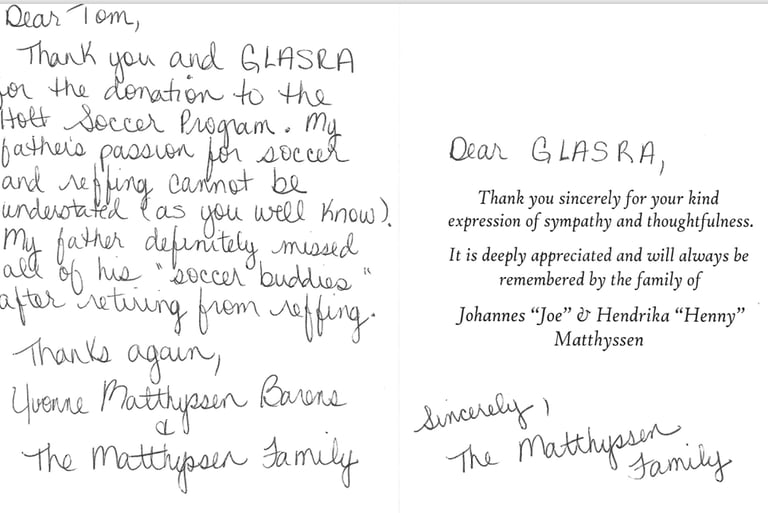 Dear Tom,
Thank you and GLASRA
for the donation to the
Holt Soccer Program. My
father's passion for soccer
and reffing cannot be
understated (as you well know).
My father definitely missed
all of his "soccer buddies"
after retiring from reffing.
Thanks again,
Yvonne Matthyssen Barens
&
The Matthyssen Family
Dear GLASRA,
Thank you sincerely for your kind
expression of sympathy and thoughtfulness.
It is deeply appreciated and will always be
remembered by the family of
Johannes "Joe" & Hendrika "Henny"
Matthyssen
Sincerely,
The Matthyssen
Family